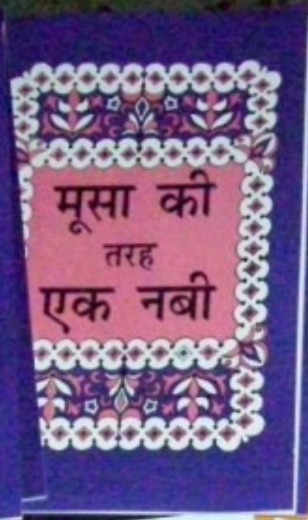 मूसा की
तरह
एक नबी